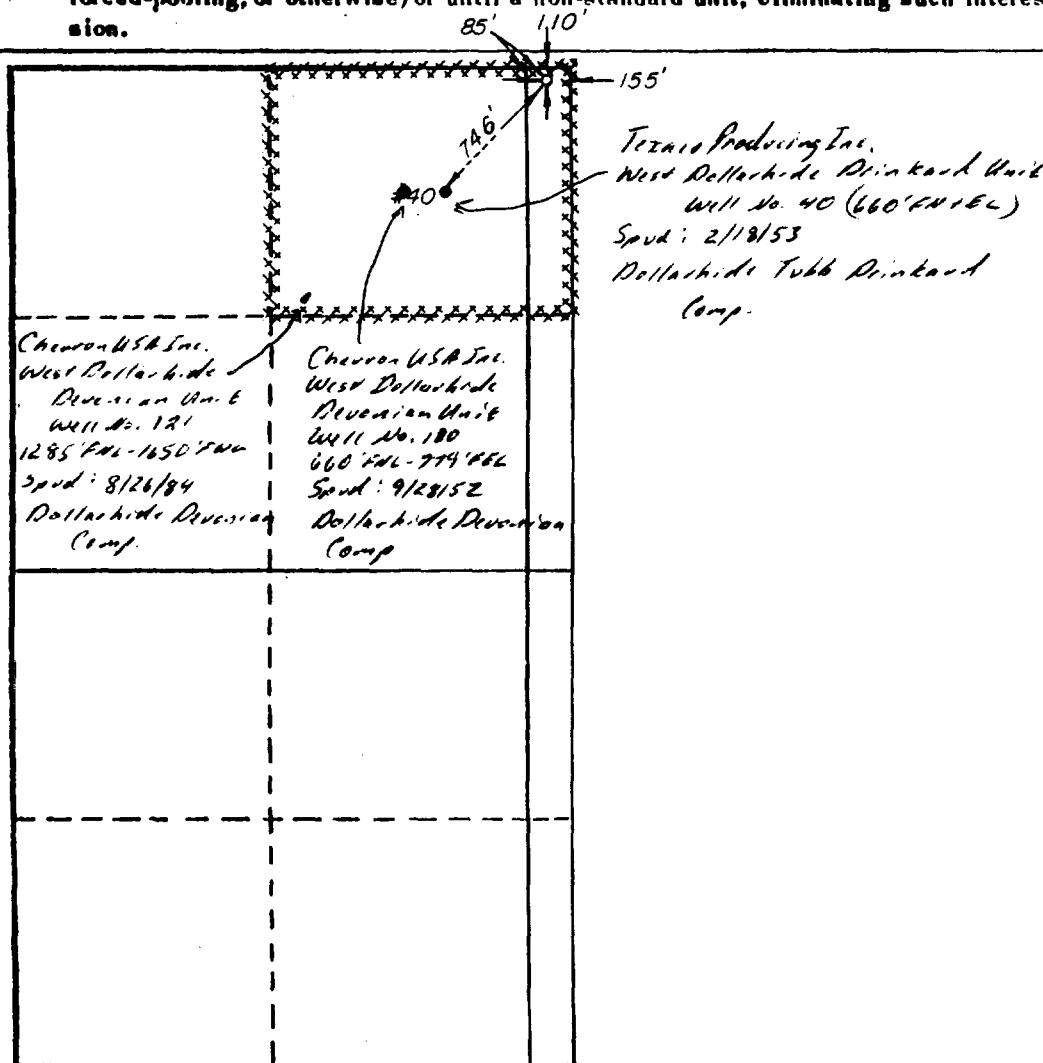 forced-pooling, or otherwise) or until a non-standard unit, eliminating such interes
sion.
85' 110'
155'
746'
#40
Texaco Producing Inc.
West Dollarhide Drinkard Unit
Well No. 40 (660' FN+EL)
Spud: 2/18/53
Dollarhide Tubb Drinkard
Comp.
Chevron USA Inc.
West Dollarhide
Devonian Unit
Well No. 121
1285' FNL-1650'
Spud: 8/26/84
Dollarhide Devonian
Comp.
Chevron USA Inc.
West Dollarhide
Devonian Unit
Well No.
660' FNL- FEL
Spud: 9/28/52
Dollarhide Devonian
Comp